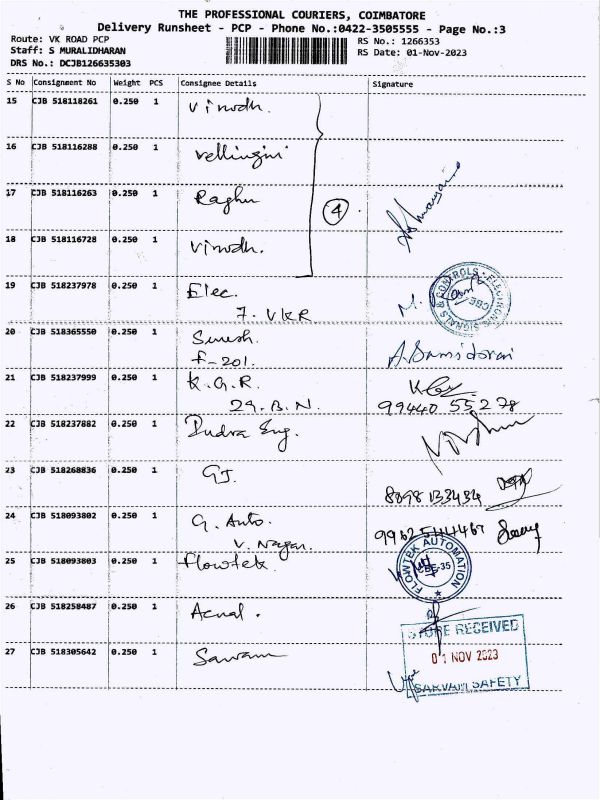 THE PROFESSIONAL COURIERS, COIMBATORE
Delivery Runsheet - PCP - Phone No.:0422-3505555 - Page No.:3
Route: VK ROAD PCP
RS No.: 1266353
Staff: S MURALIDHARAN
RS Date: 01-Nov-2023
DRS No.: DCJB126635303
S No Consignment No Weight PCS Consignee Details Signature
15 CJB 518118261 0.250 1 Vinodh.
16 CJB 518116288 0.250 1 Vellingiri
17 CJB 518116263 0.250 1 Raghu
4
18 CJB 518116728 0.250 1 Vinodh.
19 CJB 518237978 0.250 1 Elec.
7. VKR
M.
ELECTRONIC SIGNALS & CONTROLS
CBE
20 CJB 518365550 0.250 1 Suresh.
F-201.
21 CJB 518237999 0.250 1 K.G.R.
29.B.N. 99440 55278
22 CJB 518237882 0.250 1 Indra Eng.
23 CJB 518268836 0.250 1 GJ.
8098133434
24 CJB 518093802 0.250 1 G. Auto.
V. Nagar.
25 CJB 518093803 0.250 1 Flowtek
FLOWTEK AUTOMATION
CBE-35
26 CJB 518258487 0.250 1
STORE RECEIVED
27 CJB 518305642 0.250 1
01 NOV 2023
SARVAM SAFETY